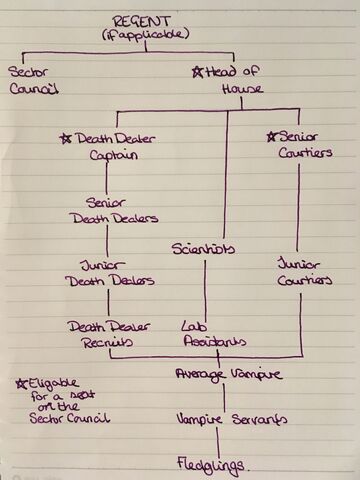 REGENT
(if applicable)
Sector
Council
☆ Head of
House
☆ Death Dealer
Captain
☆ Senior
Courtiers
Senior
Death Dealers
Scientists
Junior
Death Dealers
Junior
Courtiers
Death Dealer
Recruits
Lab
Assistants
Average Vampire
☆ Eligable
for a seat
on the
Sector Council
Vampire Servants
Fledglings.